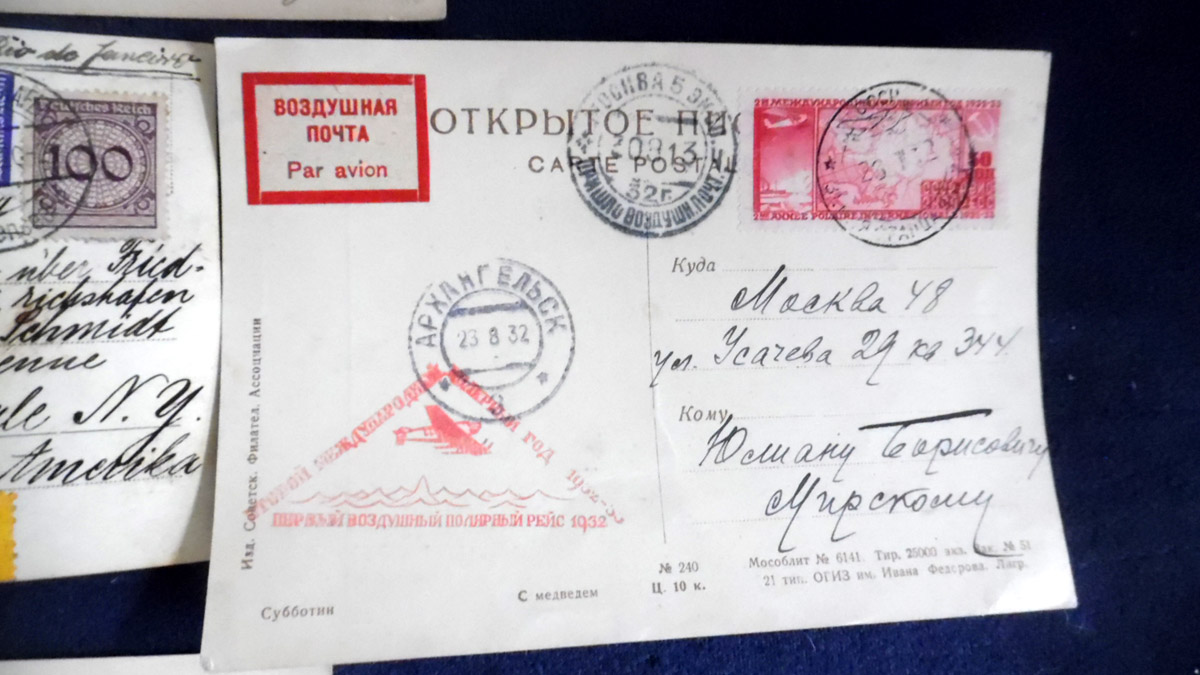 Rio de Janeiro
Deutsches Reich
100
über Fried-
richshafen
Schmidt
N. Y.
Amerika
ВОЗДУШНАЯ
ПОЧТА
Par avion
ОТКРЫТОЕ
CARTE POSTAL
МОСКВА 5
32г.
2me ANNÉE POLAIRE INTERNATIONALE 1932-33
АРХАНГЕЛЬСК
23 8 32
МЕЖДУНАРОДН
ГОД 1932-33
ПЕРВЫЙ ВОЗДУШНЫЙ ПОЛЯРНЫЙ РЕЙС 1932
Куда
Москва 48
ул. Усачева 29 кв 344.
Кому
Юлиану Борисовичу
Мирскому
Изд. Советск. Филател. Ассоциации
Субботин
С медведем
№ 240
Ц. 10 к.
Мособлит № 6141. Тир. 25000 экз. Зак. № 51
21 тип. ОГИЗ им. Ивана Федорова. Лнгр.